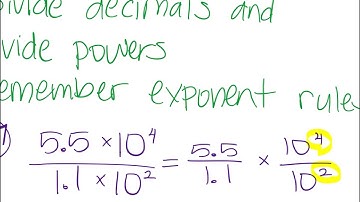 divide decimals and
vide powers
emember exponent rule
5.5 × 10⁴ / 1.1 × 10² = 5.5 / 1.1 × 10⁴ / 10²